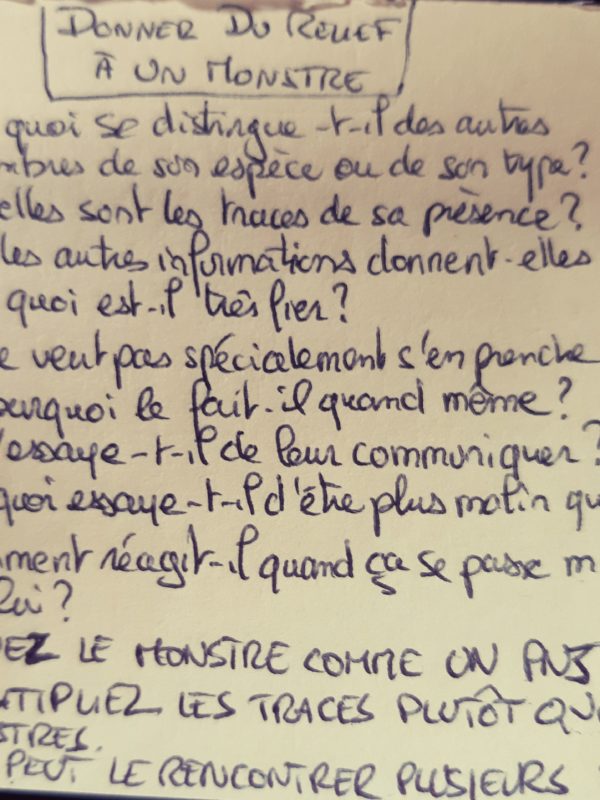 DONNER DU RELIEF
À UN MONSTRE
quoi se distingue-t-il des autres
mbres de son espèce ou de son type?
elles sont les traces de sa présence?
les autres informations donnent-elles
quoi est-il très fier?
e veut pas spécialement s'en prendre
ourquoi le fait-il quand même?
'essaye-t-il de leur communiquer?
quoi essaye-t-il d'être plus malin qu
mment réagit-il quand ça se passe m
lui?
EZ LE MONSTRE COMME UN PNJ
LTIPLIEZ LES TRACES PLUTÔT QU
STRES.
PEUT LE RENCONTRER PLUSIEURS